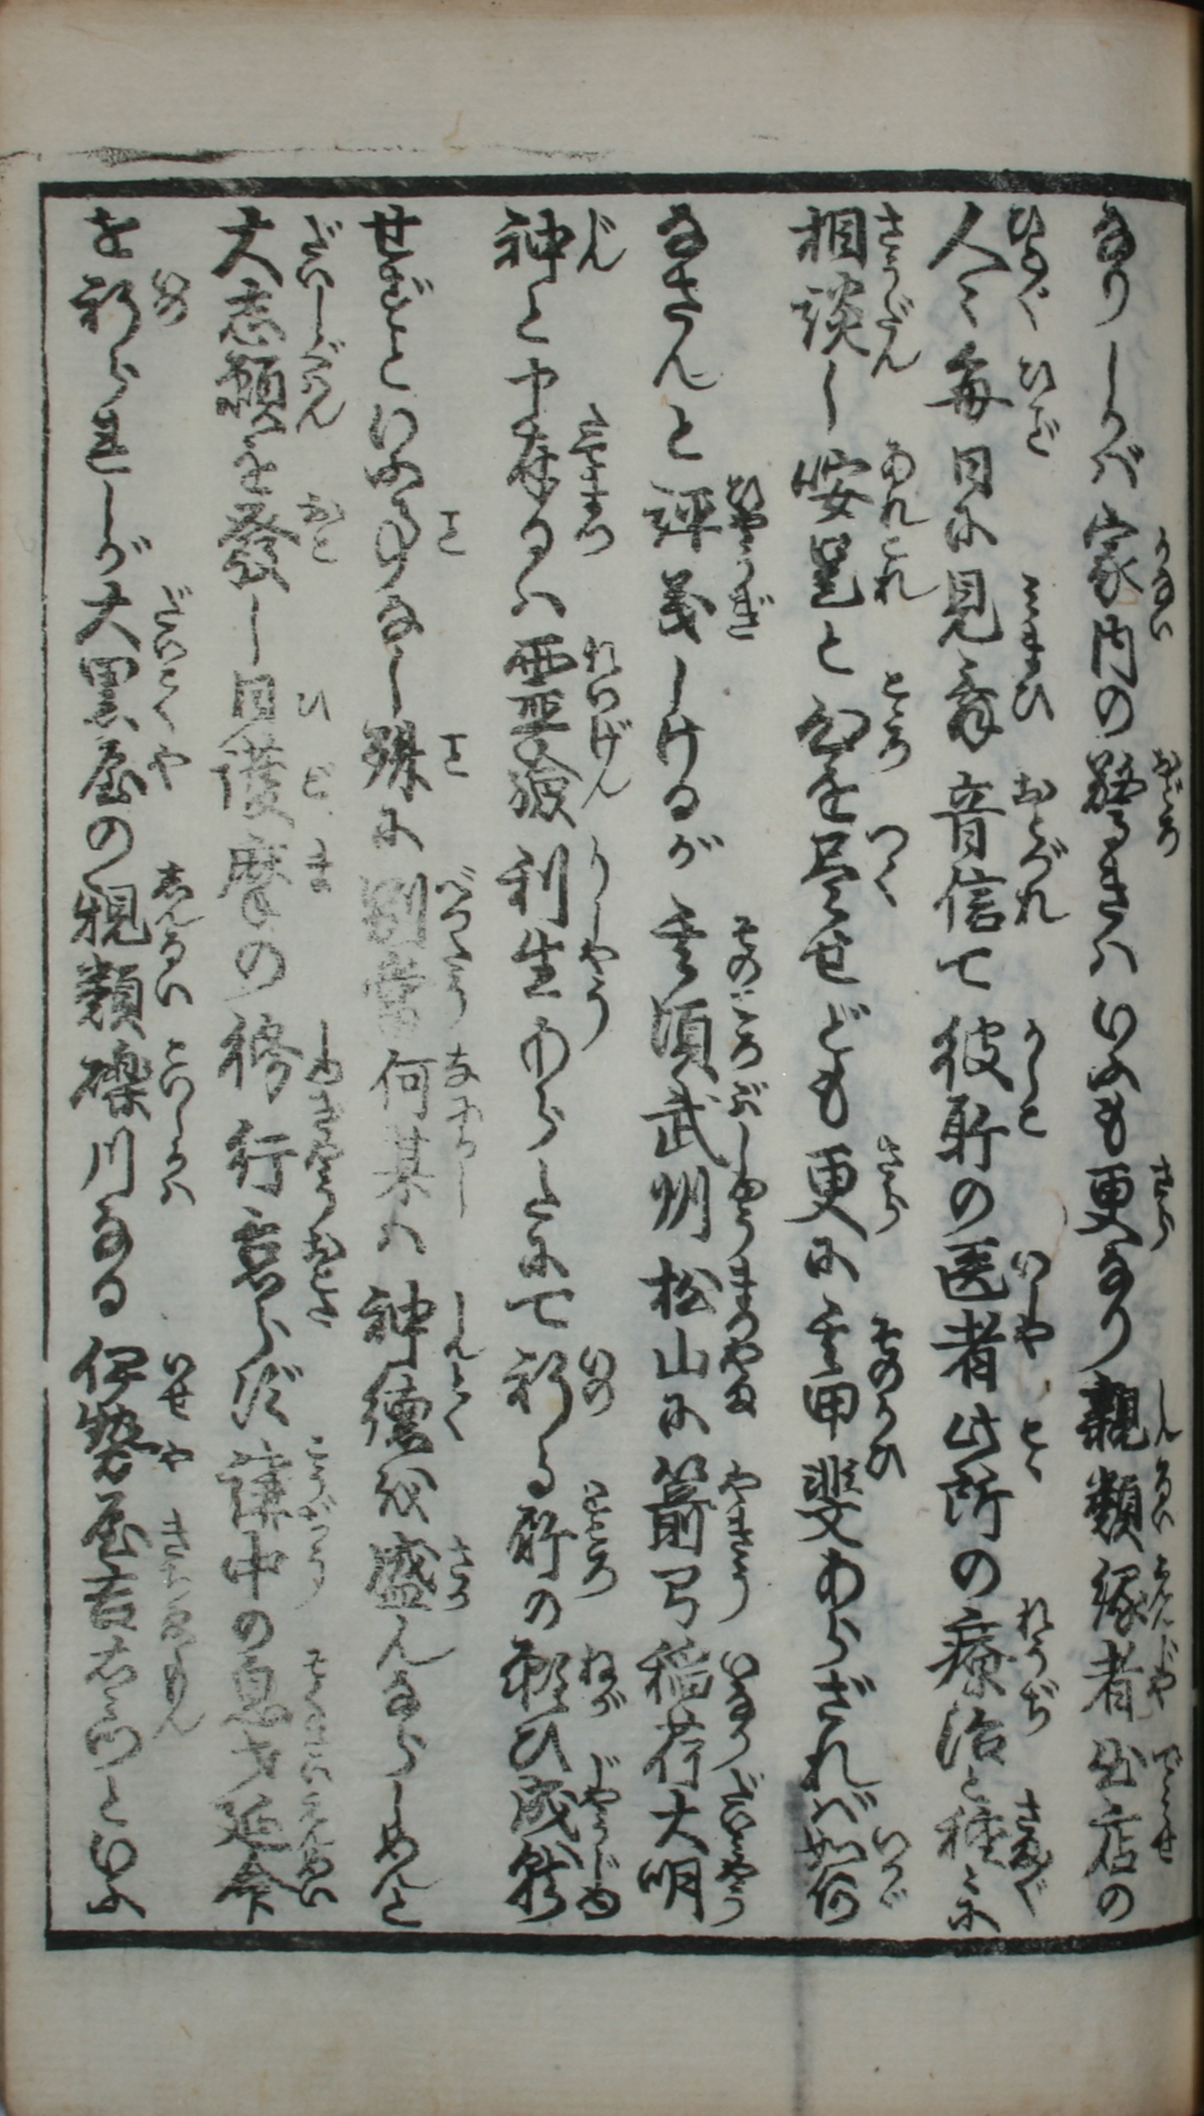 なりしかバ家内の驚きハいふも更なり親類縁者出店の
人々毎日に見舞音信て彼所の医者此所の療治と種々に
相談し安是と心を尽せども更に其甲斐あらざれバ如何
なさんと評義しけるが其頃武州松山に箭弓稲荷大明
神と申奉るハ霊験利生あらたにて祈る所の願ひ成就
せずといふ事なし殊に別当何某ハ神徳を盛んならしめんと
大志願を發し日護摩の修行怠らず講中の息才延命
を祈られしが大黒屋の親類礫川なる伊勢屋吉右衛門といふ